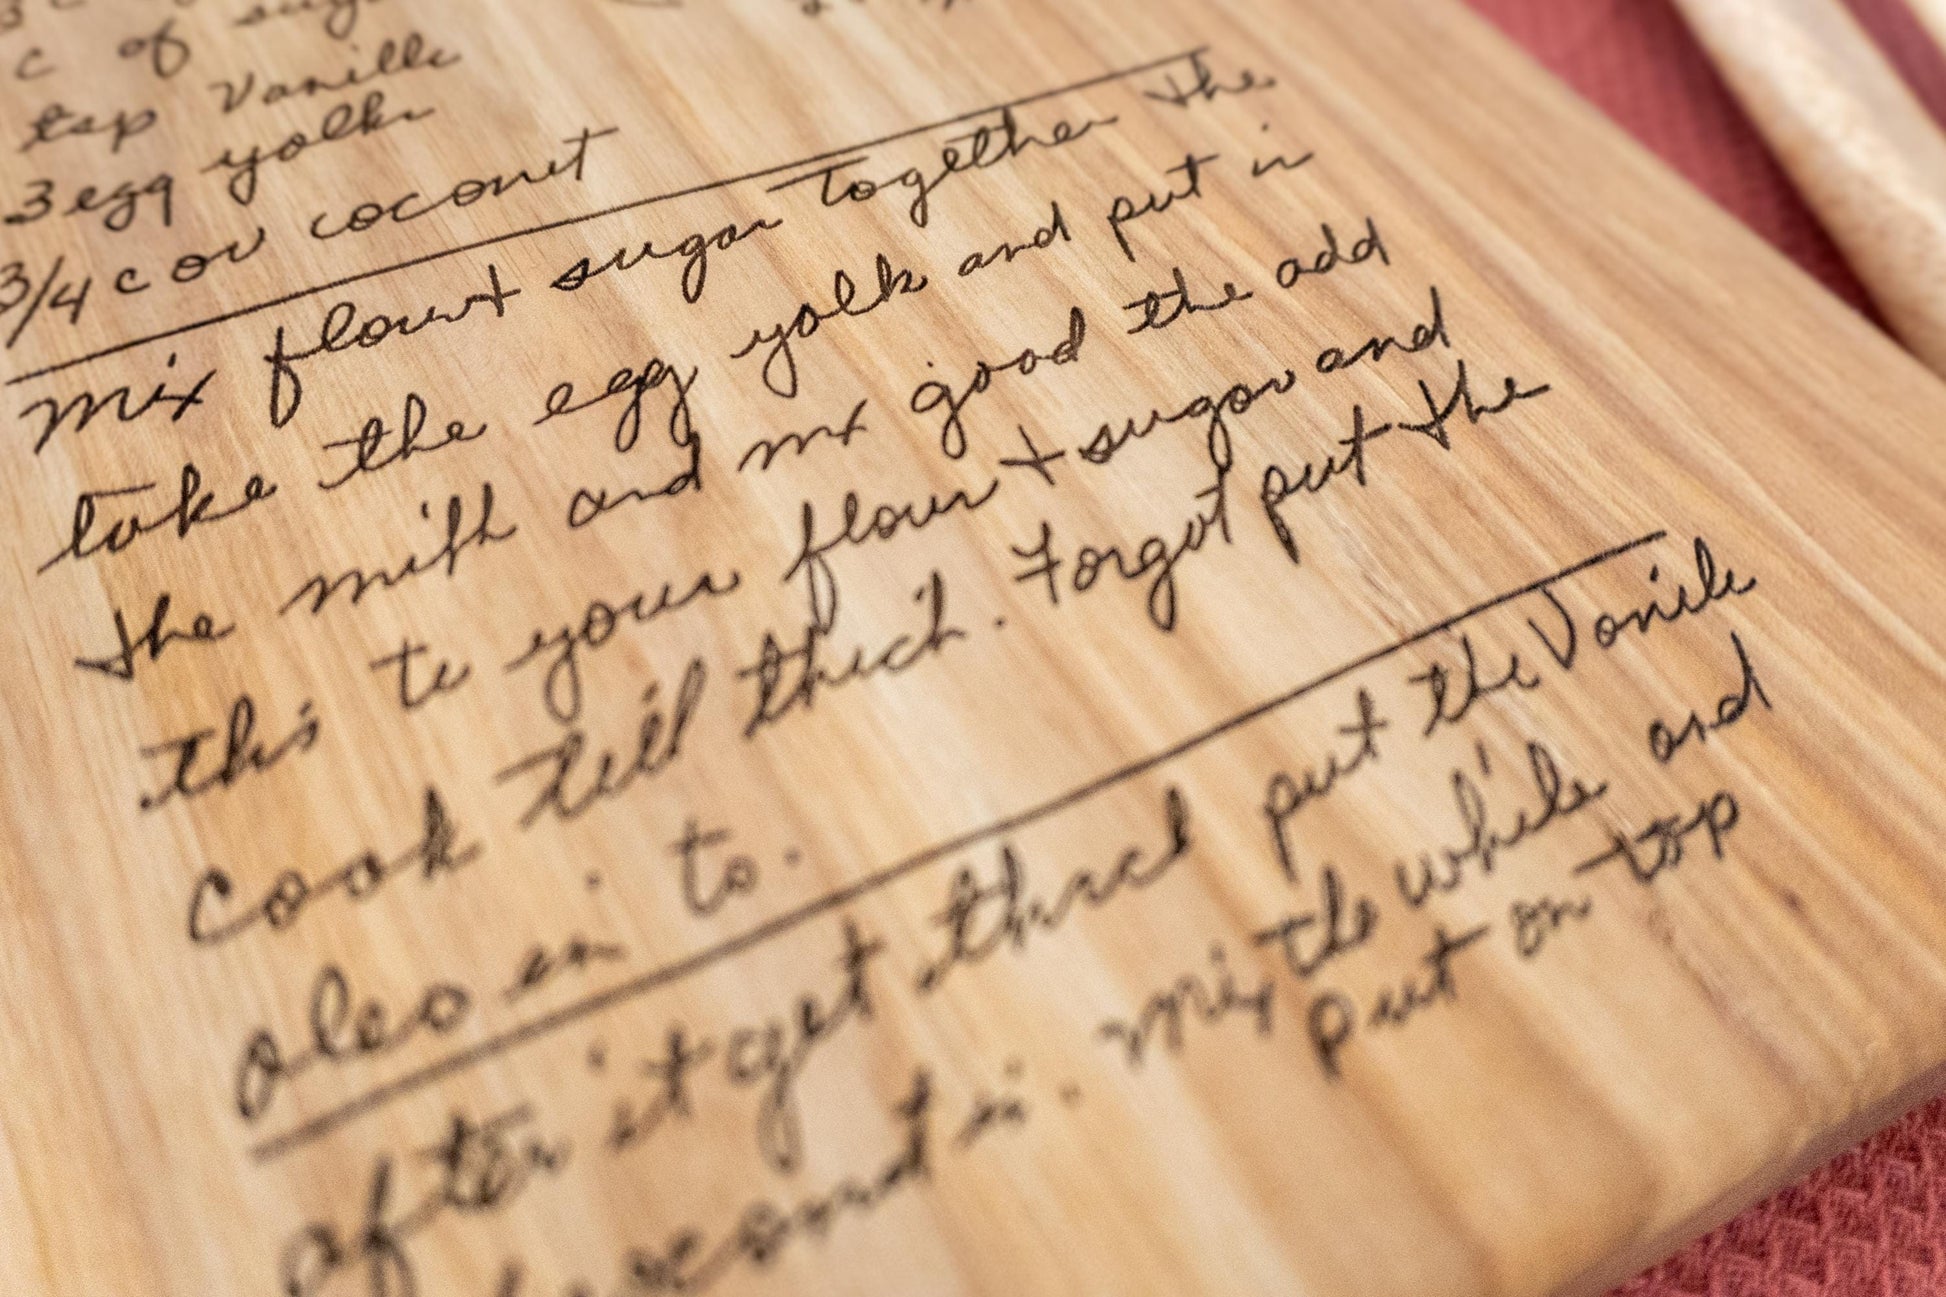 c of sugar
tsp Vanille
3 egg yolks
3/4 c ov coconut
mix flour + sugar together the
take the egg yolk and put in
the milk and mx good the add
this to your flour + sugar and
cook till thick. Forgot put the
oleo in to.
after it get thick put the Vanile
coconut in. mix the while and
put on top